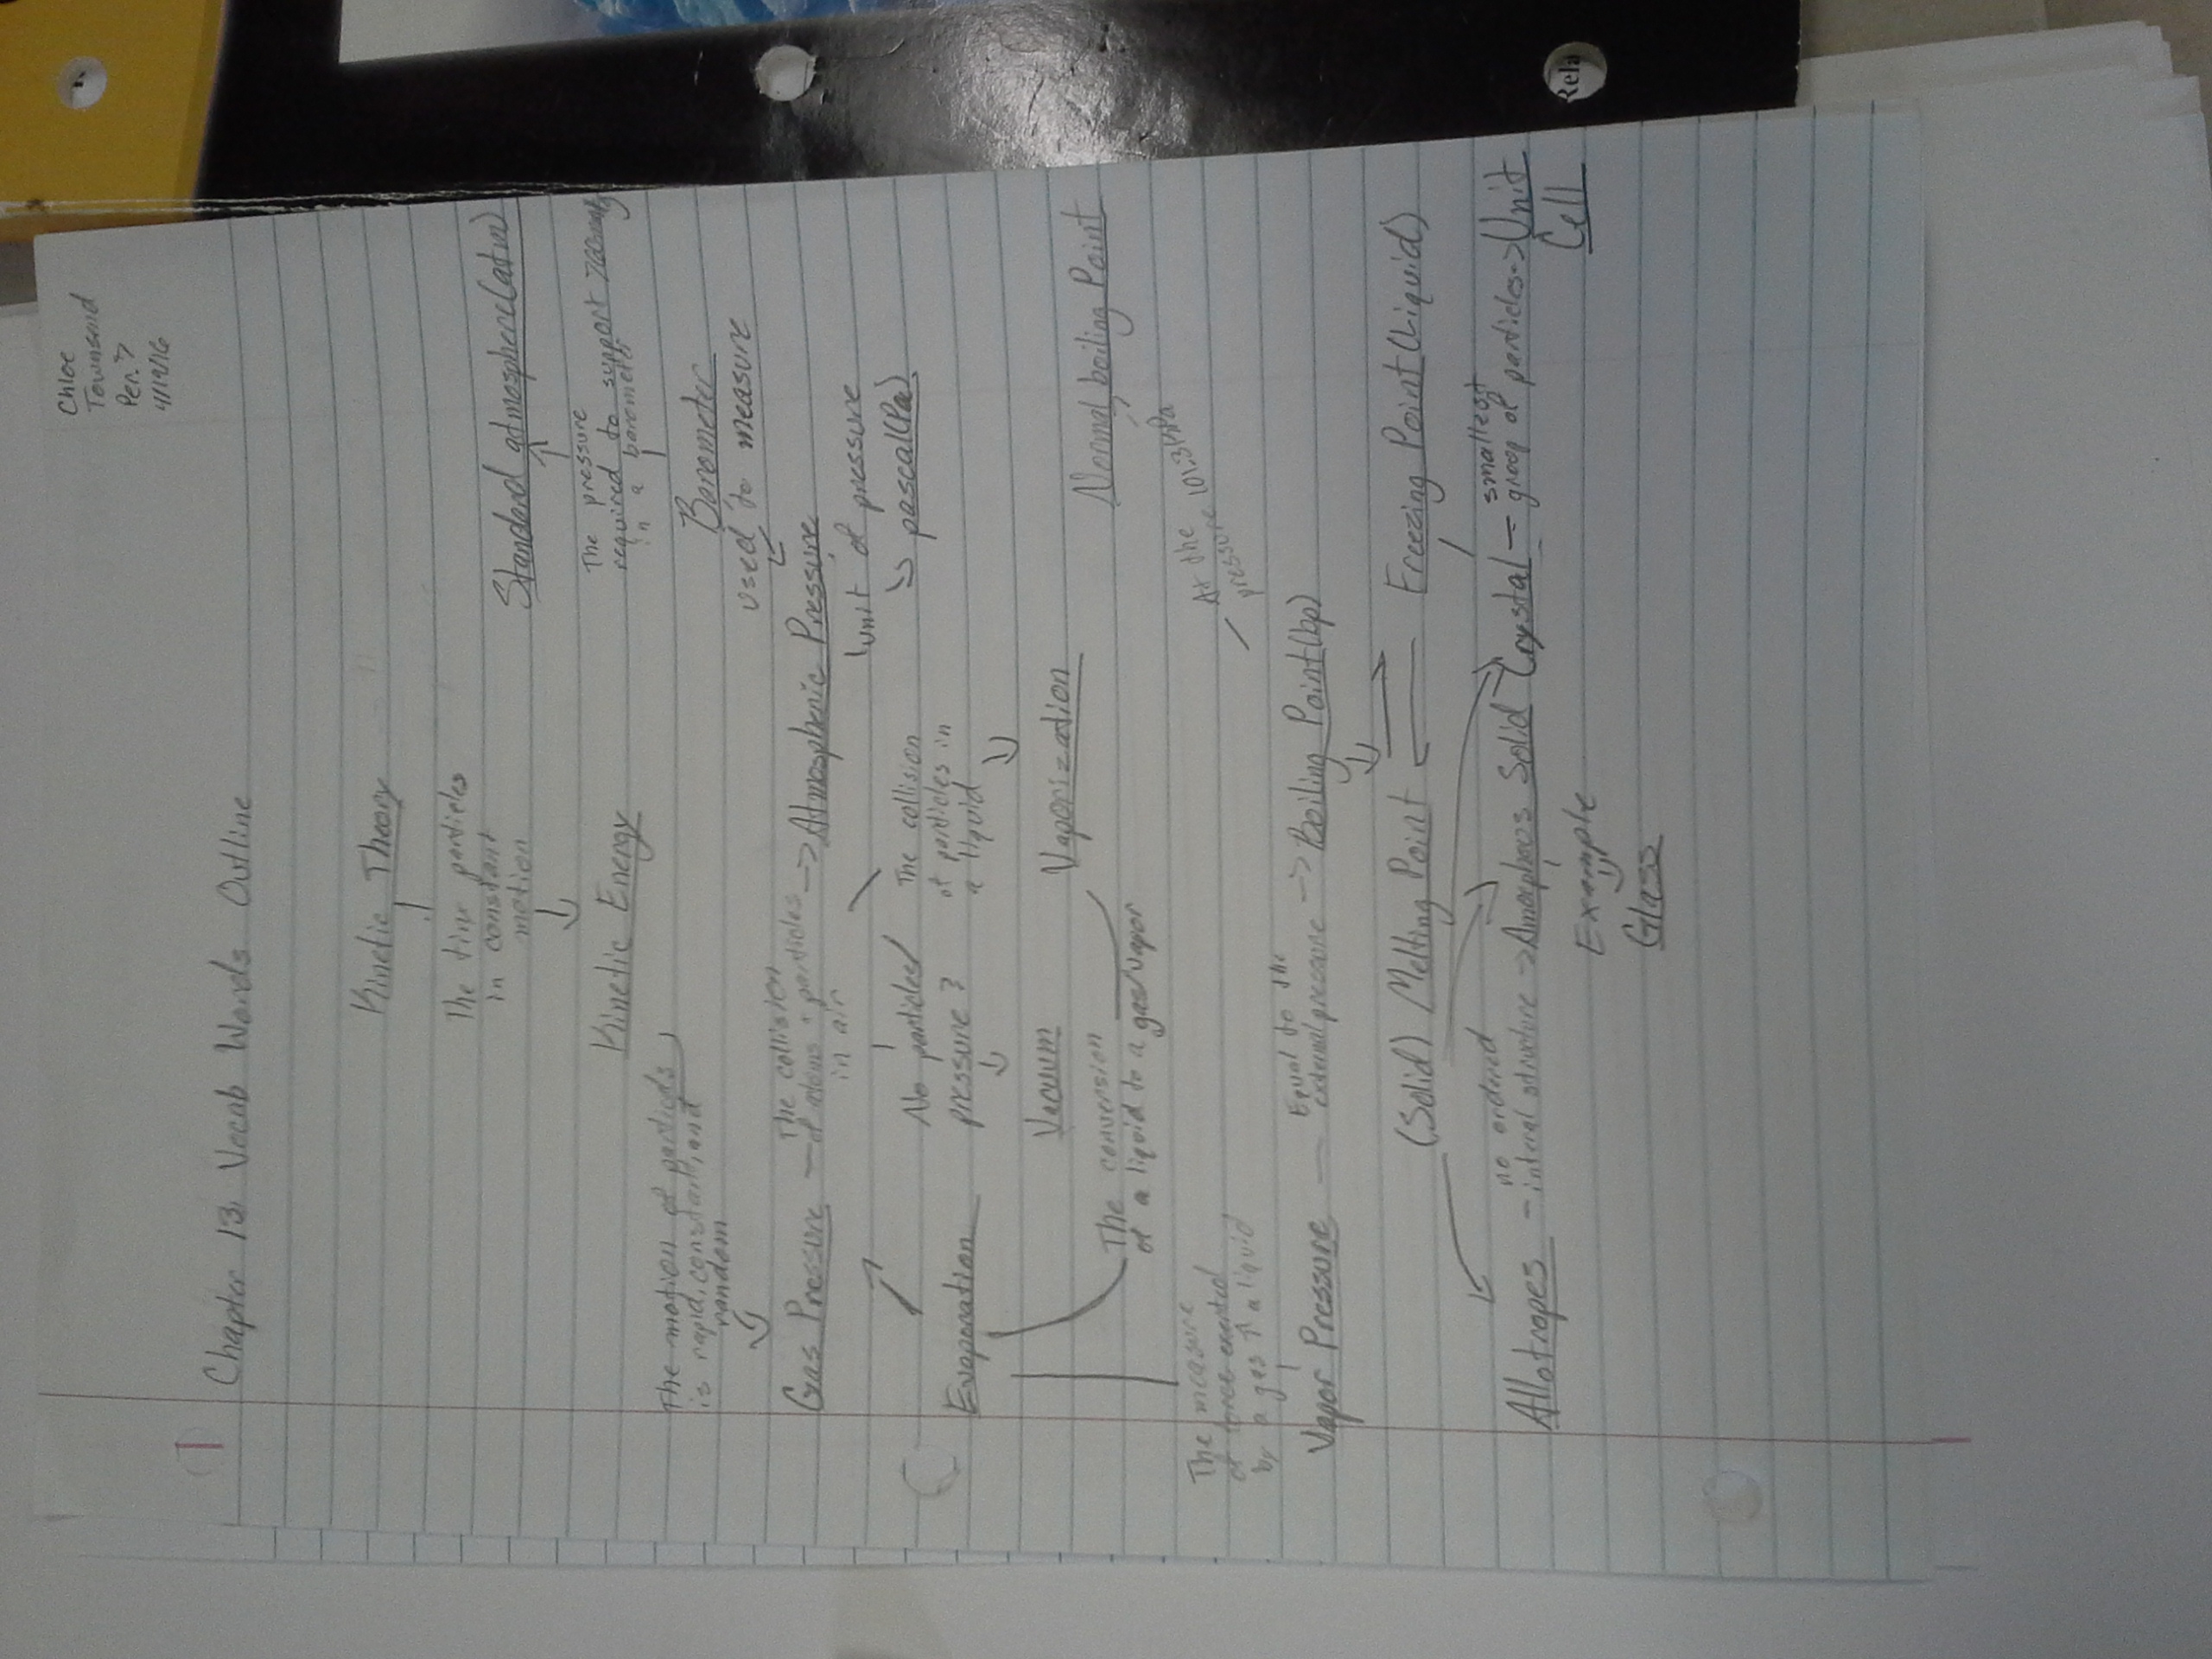 Chloe
Townsend
Per. 7
4/19/16
Chapter 13 Vocab Words Outline
Kinetic Theory
The tiny particles
in constant
motion
Standard atmosphere (atm)
The pressure
required to support 760mmHg
in a barometer
Kinetic Energy
The motion of particles
is rapid, constant, and
random
Barometer
used to measure
Gas Pressure
The collision
of atoms & particles ->
in air
Atmospheric Pressure
Unit of pressure
pascal (Pa)
No particles/
pressure ?
The collision
of particles in
a liquid
Evaporation
Vacuum
Vaporization
Normal boiling Point
The conversion
of a liquid to a gas/vapor
At the 101.3 kPa
pressure
The measure
of force exerted
by a gas ↑ a liquid
Vapor Pressure
Equal to the
external pressure ->
Boiling Point (bp)
(Solid) Melting Point
Freezing Point (Liquid)
Allotropes
no ordered
- interal structure -> Amorphous Solid
Crystal
smallest
- group of particles -> Unit
Cell
Example
Glass
Rela